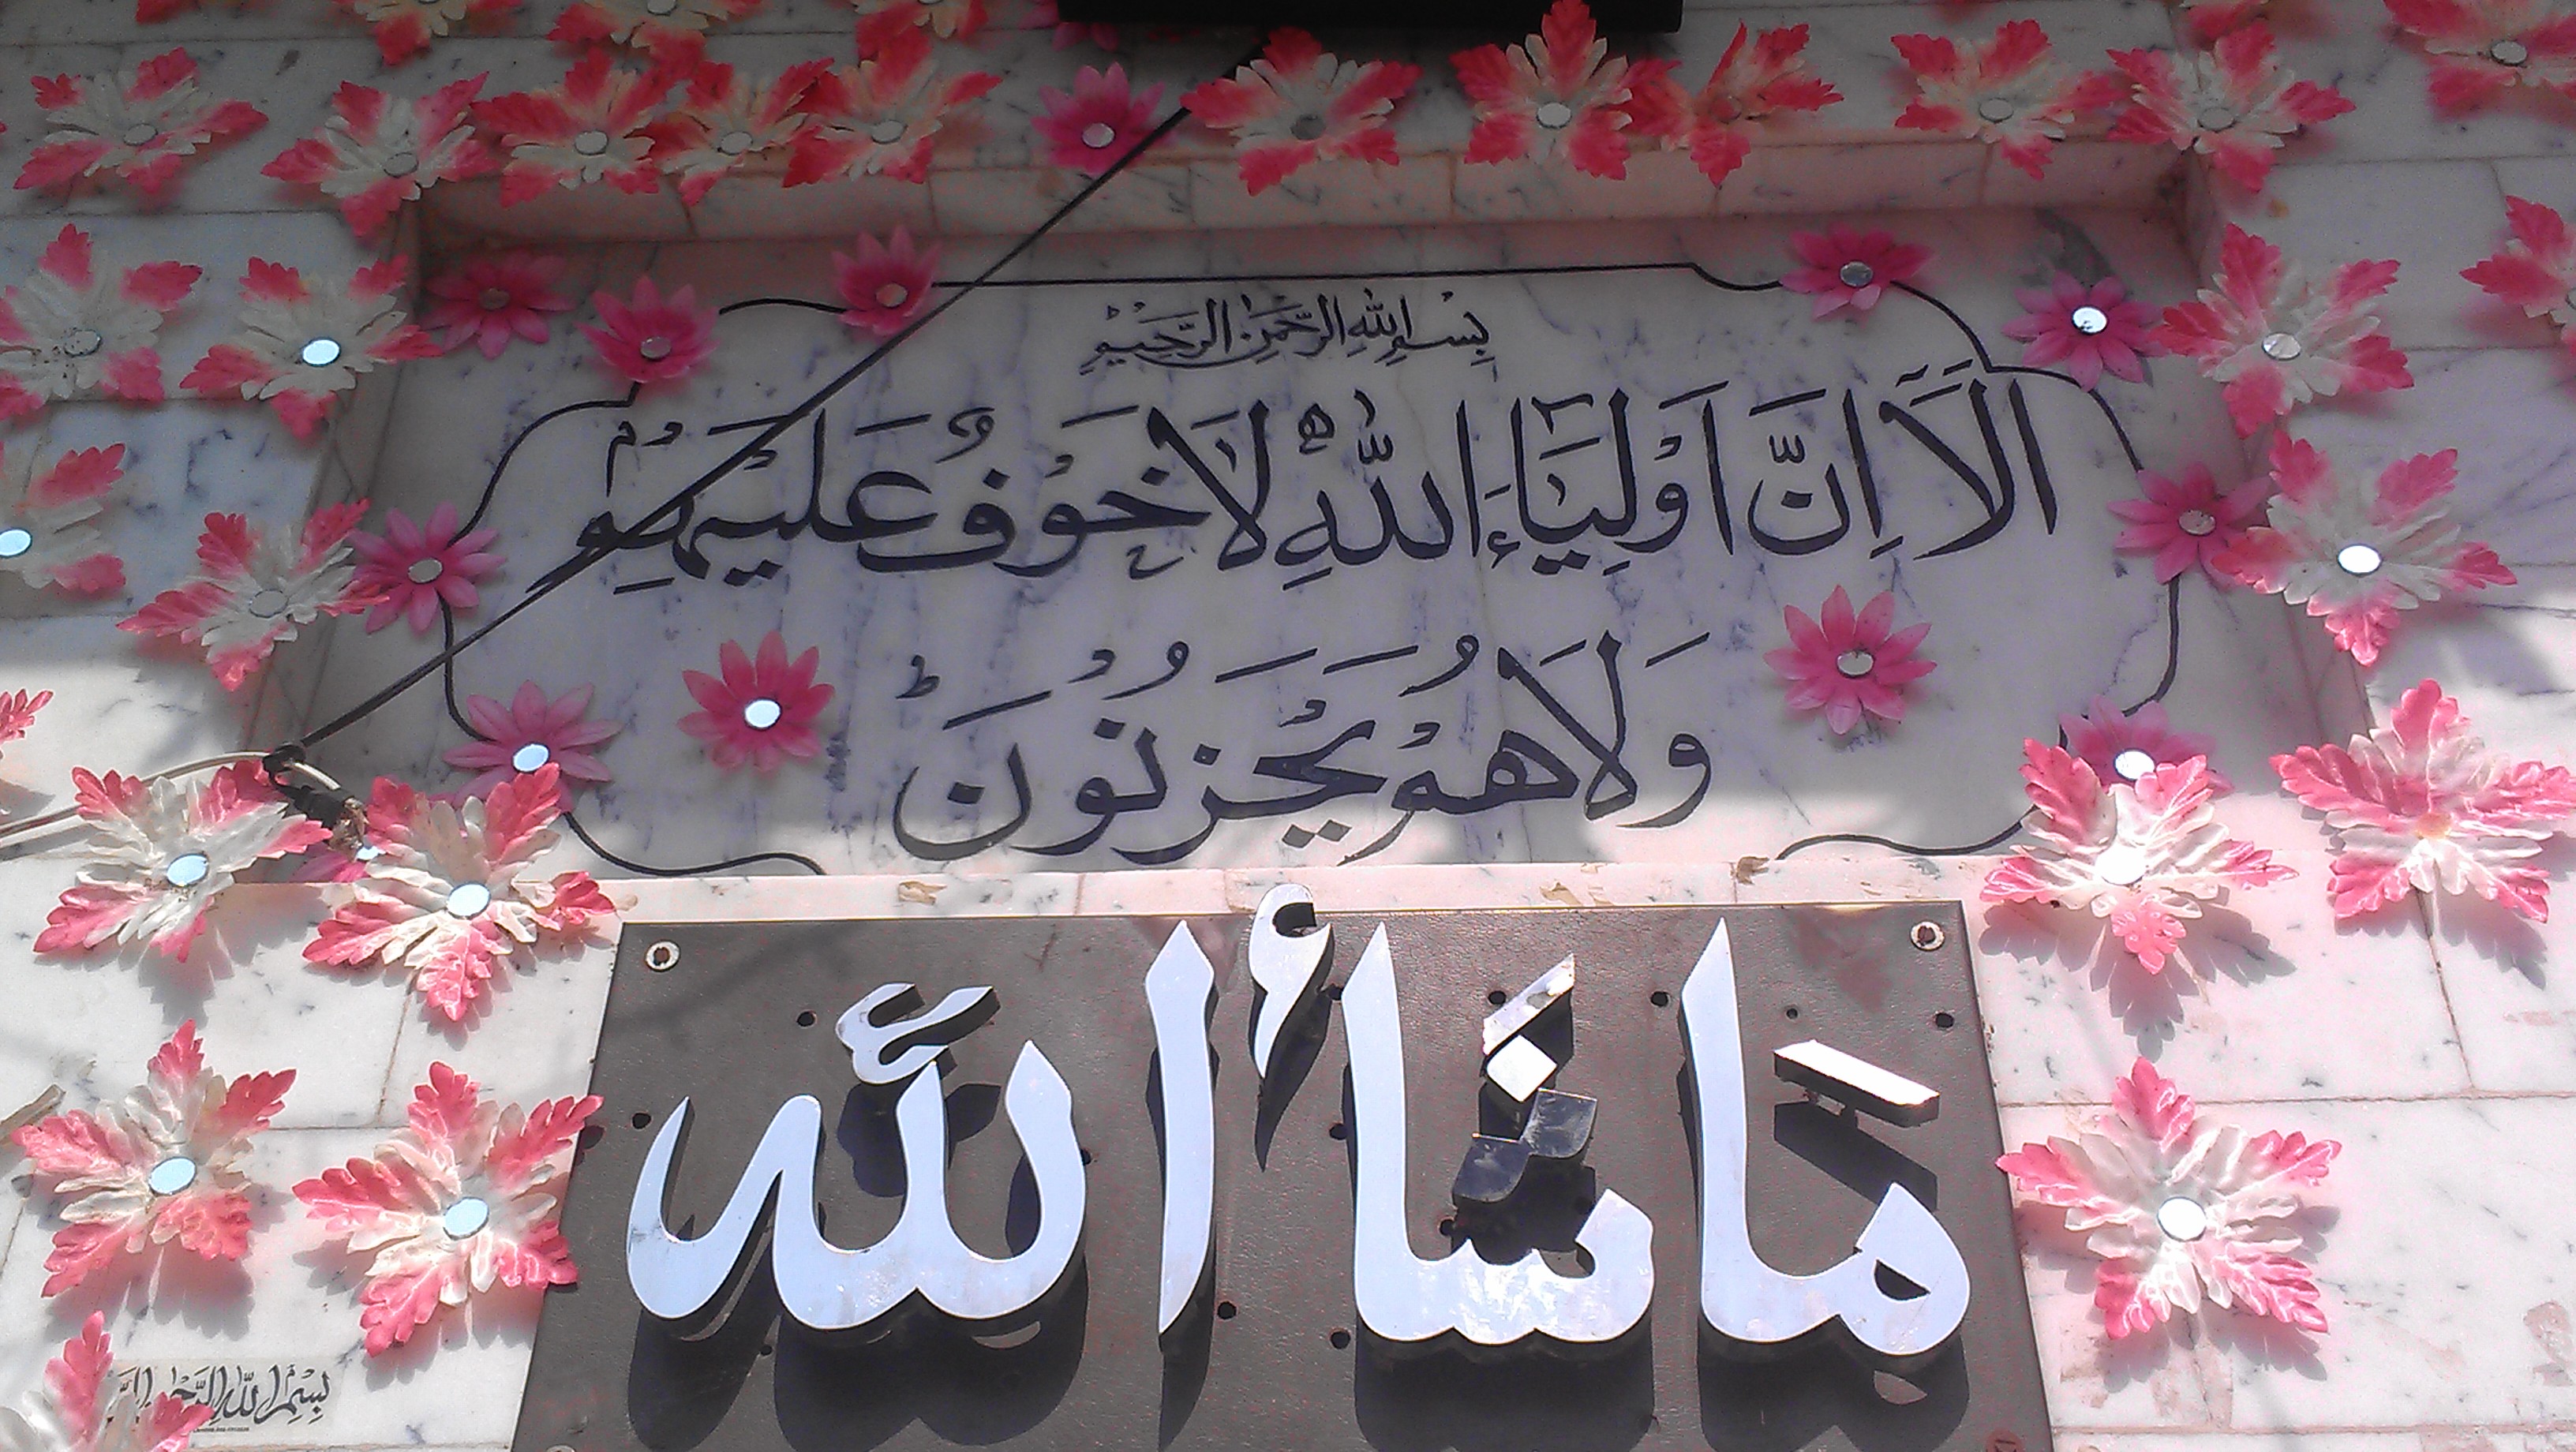 بِسْمِ اللهِ الرَّحْمٰنِ الرَّحِيْمِ
اَلَآ اِنَّ اَوْلِيَآءَ اللّٰهِ لَا خَوْفٌ عَلَيْهِمْ
وَلَا هُمْ يَحْزَنُوْنَ
مَاشَاءَ اللّٰه
بِسْمِ اللّٰهِ الرَّحْمٰنِ